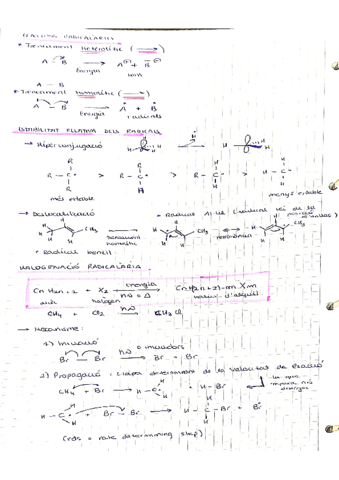 REACCIONS RADICALÀRIES
• Trencament Heterolític (⟶)
A — B ⟶ A⊕ + B⊖
Energia ions
A — B
• Trencament Homolític (⟶)
A — B ⟶ A• + B•
Energia radicals
ESTABILITAT RELATIVA DELS RADICALS
→ Hiperconjugació
R R H H
R — C• > R — C• > R — C• > H — C•
R H
més estable menys estable
→ Deslocalització
• Radical
CH3
trencament homolític
ressonància
• Radical benzil
HALOGENACIÓ RADICALÀRIA
CnH2n+2 + X2 energia ⟶ CnH(2n+2)-m Xm
alcà halogen hν o Δ
CH4 + Cl2 hν ⟶ CH3Cl
→ Mecanisme:
1) Iniciació
hν o iniciadors
Br — Br ⟶ Br• + Br•
2) Propagació: Etapa determinant de la velocitat de reacció
CH4 + Br• ⟶ H — C• + H — Br
la que requereix més energia
H — C• + Br — Br ⟶ H — C — Br + Br•
(rds = rate determining step)